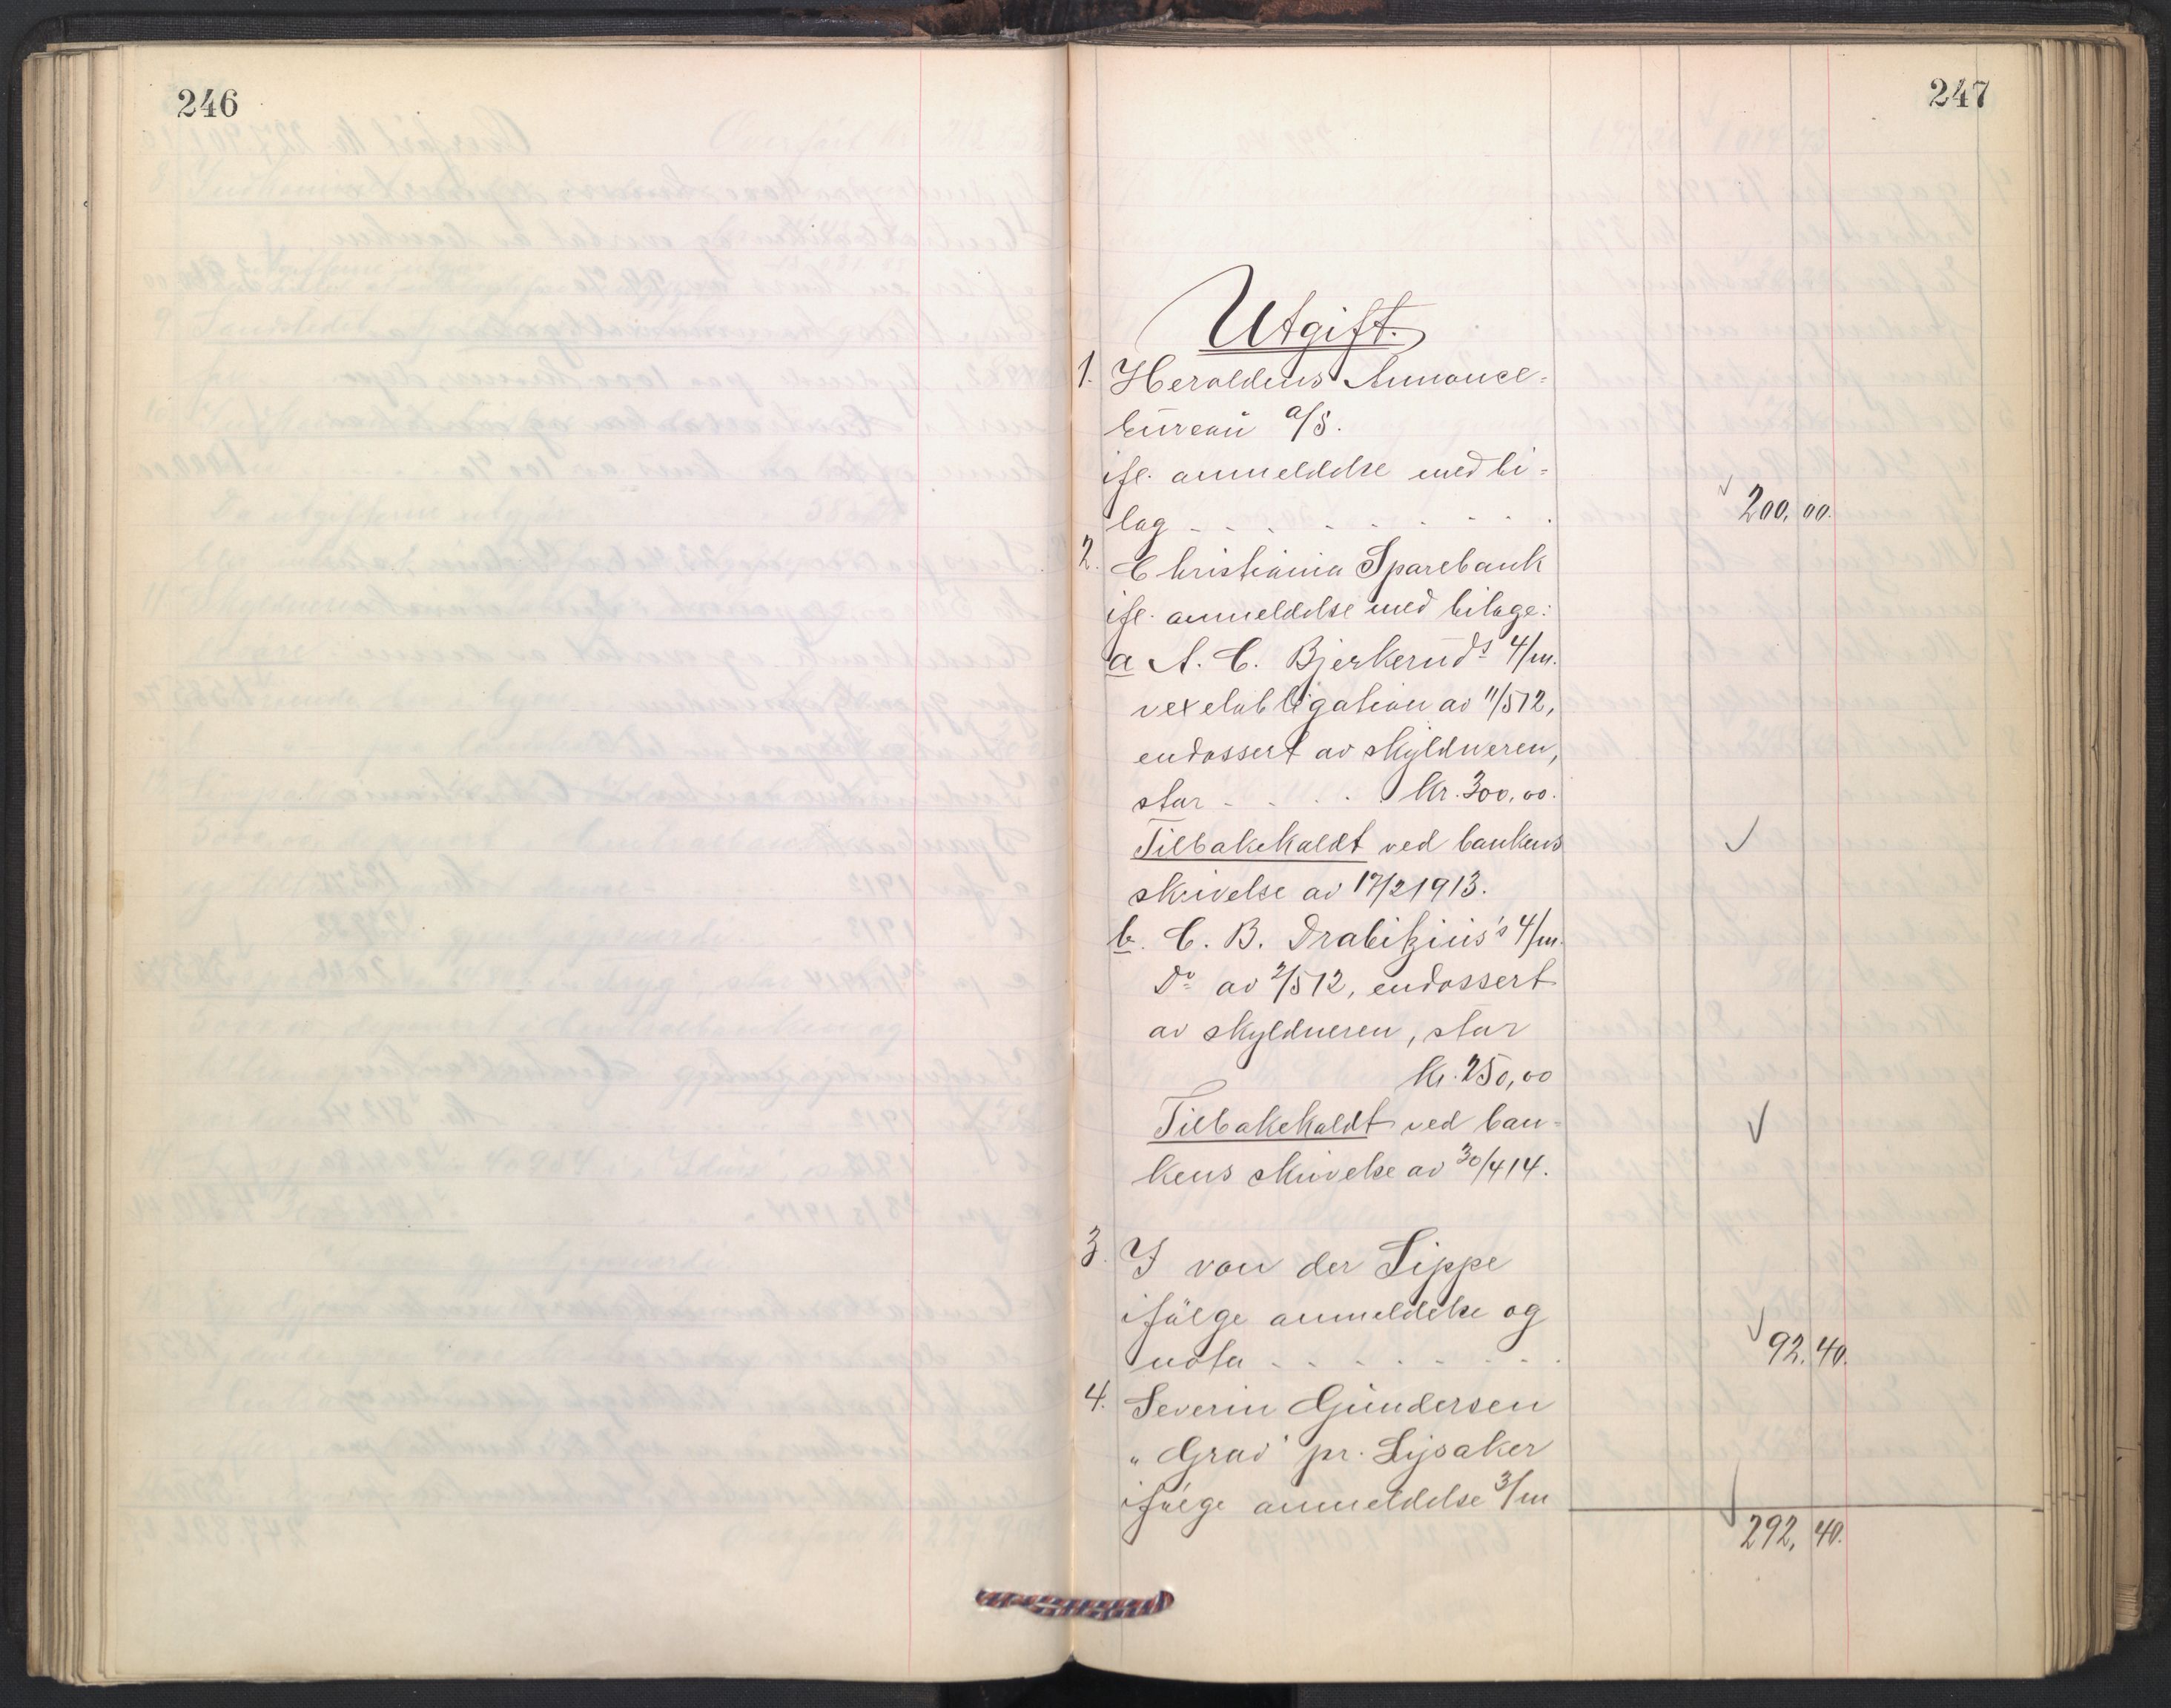 246
247
Utgift.
1. Heroldens Annonce-
bureau a/s.
ifl. anmeldelse med bi-
lag 200,00.
2. Christiania Sparebank
ifl. anmeldelse med bilage:
a A. C. Bjerkeruds 4/m.
vexelobligation av 11/5 12,
endossert av skyldneren,
stor kr. 300,00.
Tilbakekaldt ved bankens
skrivelse av 17/2 1913.
b. C. B. Drabitzius's 4/m.
Do av 2/5 12, endossert
av skyldneren, stor
kr. 250,00
Tilbakekaldt ved ban-
kens skrivelse av 30/4 14.
3. I von der Lippe
ifølge anmeldelse og
nota 92,40.
4. Severin Gundersen
"Grav" pr. Lysaker
ifølge anmeldelse 3/m
292,40.